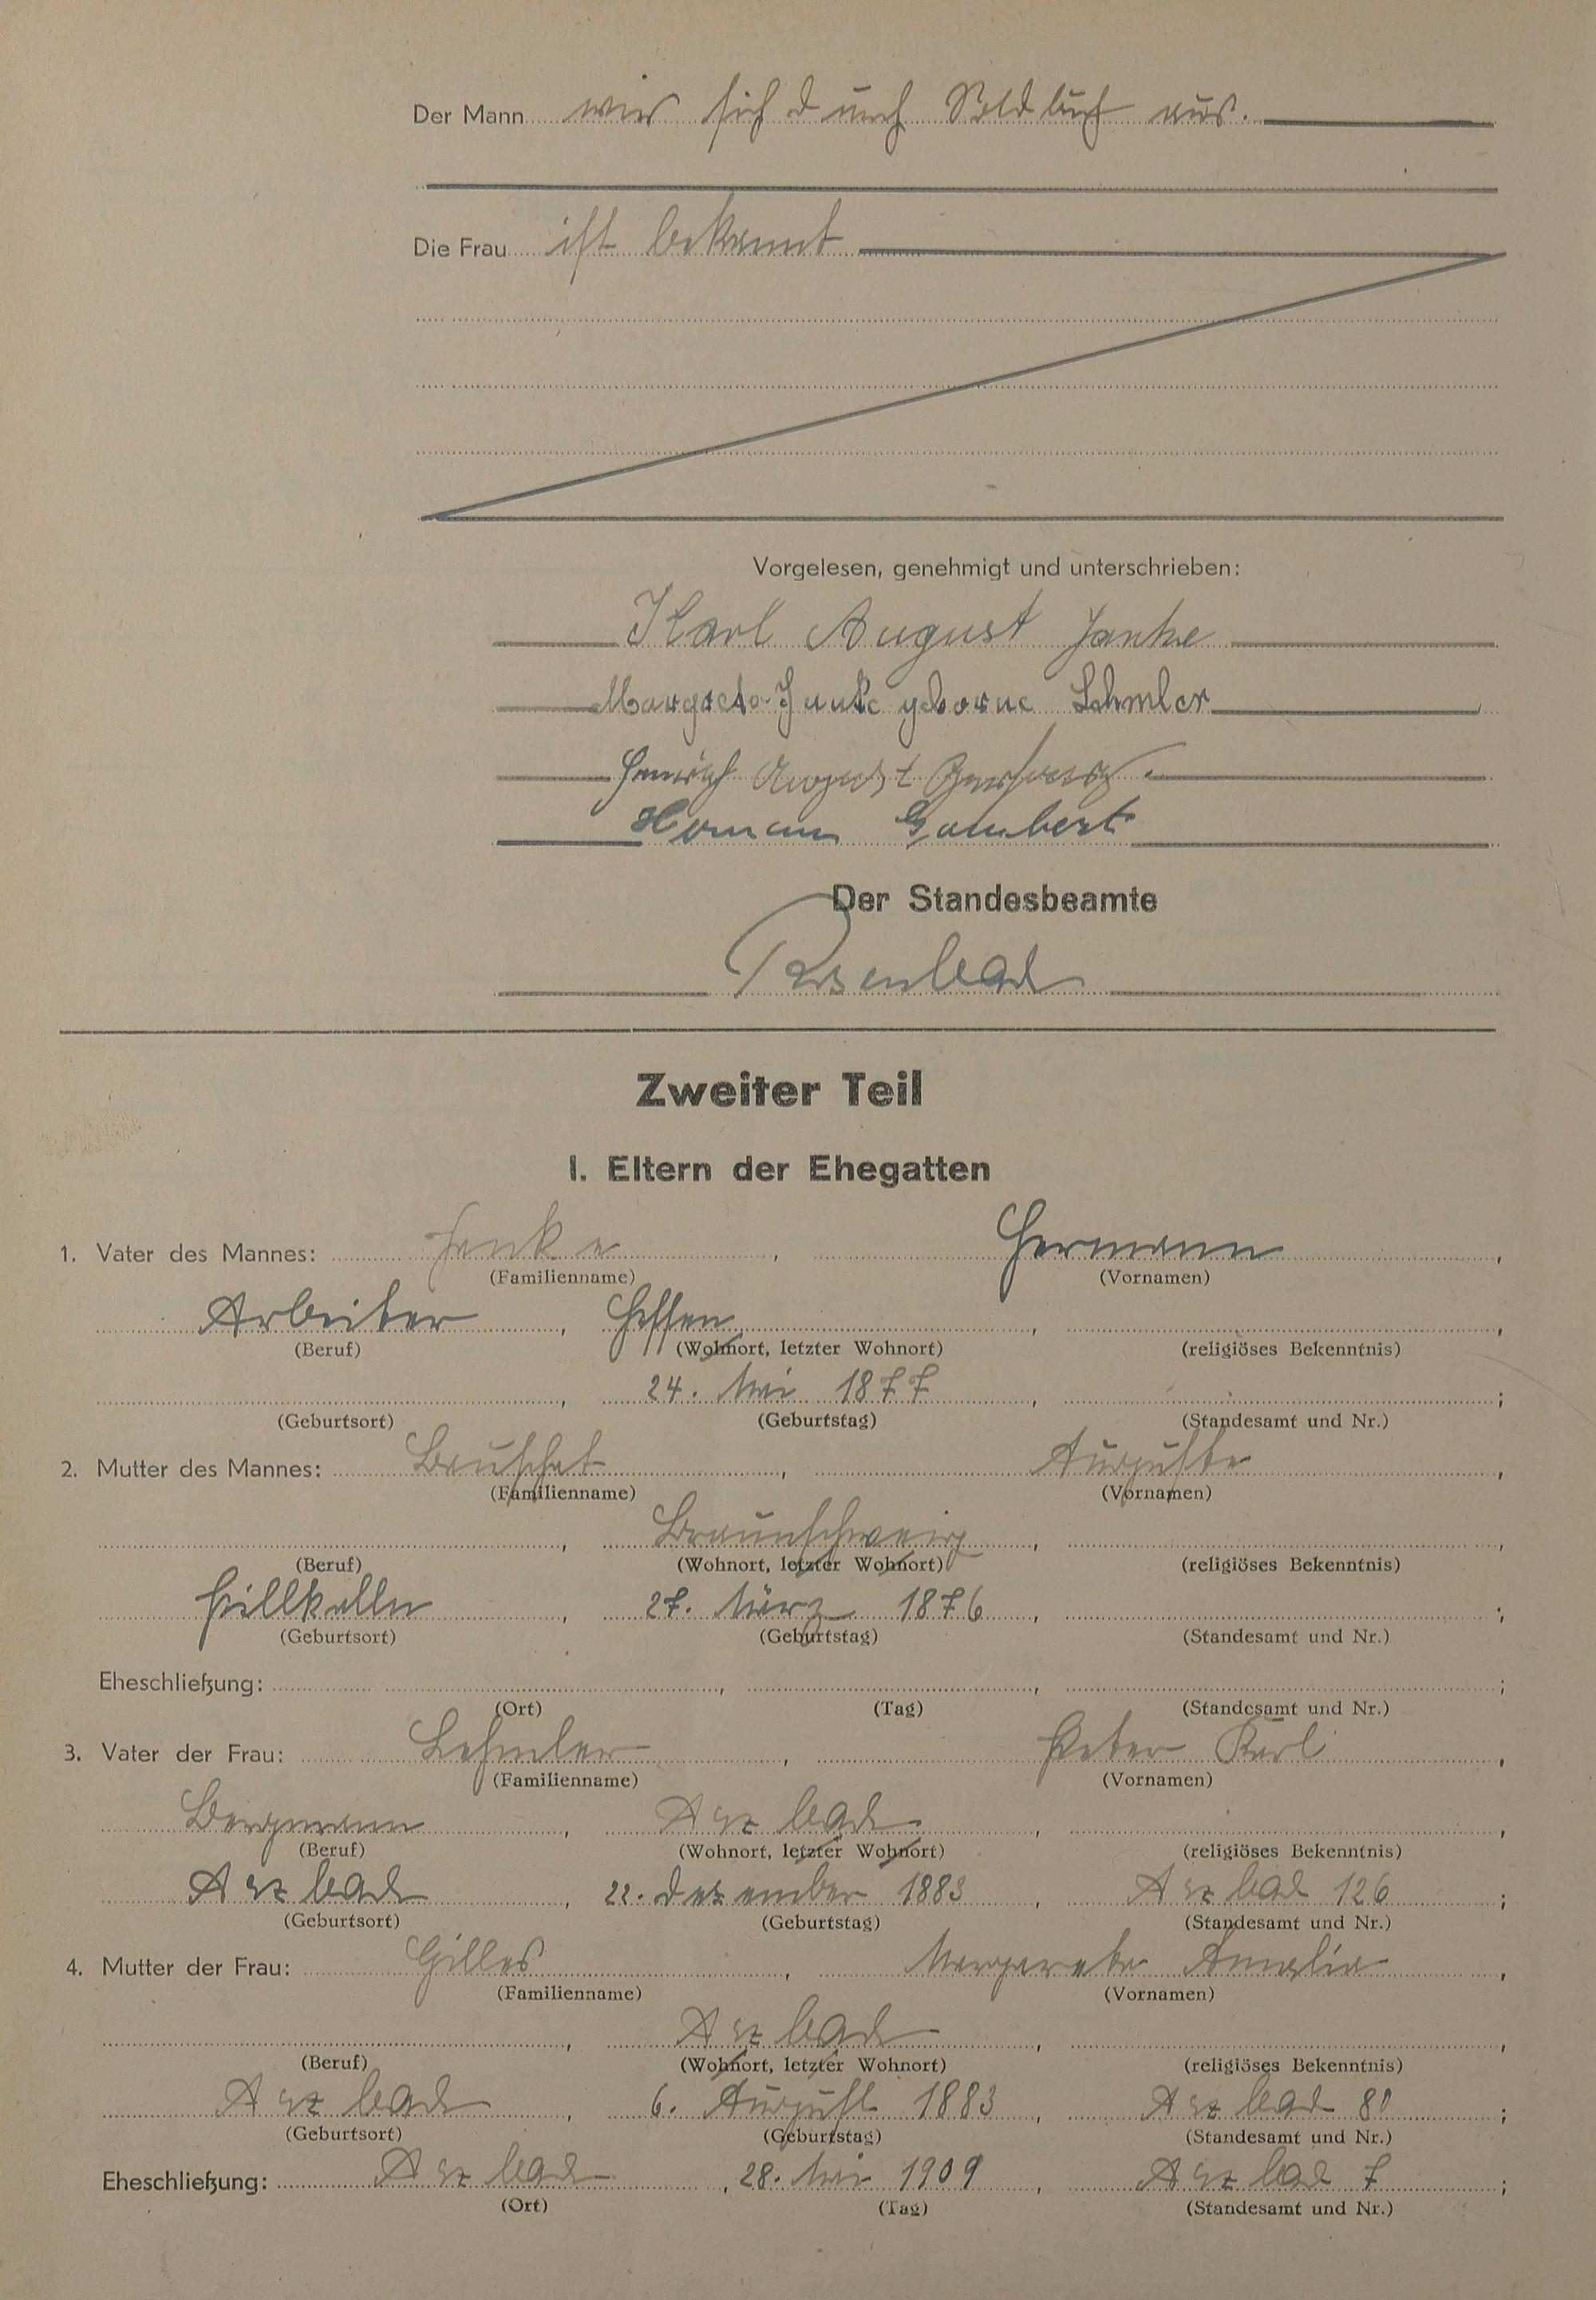 Der Mann wies sich durch Soldbuch aus.
Die Frau ist bekannt
Vorgelesen, genehmigt und unterschrieben:
Karl August Janke
Margarete Janke geborne Lehmler
Heinrich August
Hermann Gombert
Der Standesbeamte
Zweiter Teil
I. Eltern der Ehegatten
1. Vater des Mannes: Janke, Hermann,
(Familienname) (Vornamen)
Arbeiter, Hessen,
(Beruf) (Wohnort, letzter Wohnort) (religiöses Bekenntnis)
24. Mai 1877
(Geburtsort) (Geburtstag) (Standesamt und Nr.)
2. Mutter des Mannes: Auguste,
(Familienname) (Vornamen)
Braunschweig,
(Beruf) (Wohnort, letzter Wohnort) (religiöses Bekenntnis)
Pillkallen, 27. März 1876,
(Geburtsort) (Geburtstag) (Standesamt und Nr.)
Eheschließung:
(Ort) (Tag) (Standesamt und Nr.)
3. Vater der Frau: Lehmler, Peter Karl,
(Familienname) (Vornamen)
Bergmann, Arzbach,
(Beruf) (Wohnort, letzter Wohnort) (religiöses Bekenntnis)
Arzbach, 22. Dezember 1883, Arzbach 126;
(Geburtsort) (Geburtstag) (Standesamt und Nr.)
4. Mutter der Frau: Gilles, Margarete Amalia,
(Familienname) (Vornamen)
Arzbach,
(Beruf) (Wohnort, letzter Wohnort) (religiöses Bekenntnis)
Arzbach, 6. August 1883, Arzbach 80;
(Geburtsort) (Geburtstag) (Standesamt und Nr.)
Eheschließung: Arzbach, 28. Mai 1909, Arzbach 7;
(Ort) (Tag) (Standesamt und Nr.)